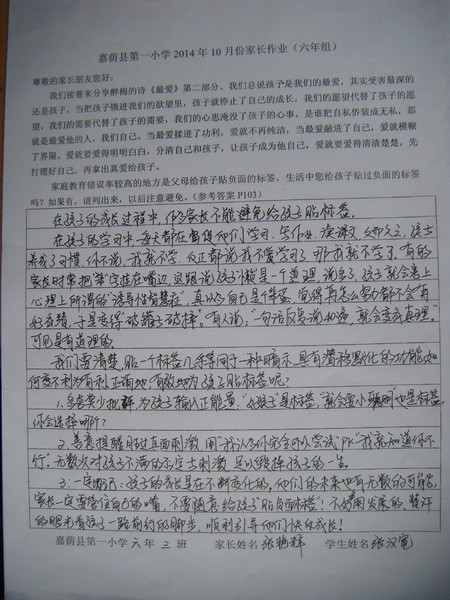 嘉荫县第一小学 2014 年 10 月份家长作业（六年组）
尊敬的家长朋友您好：
我们接着来分享醉梅的诗《最爱》第二部分。我们总说孩子是我们的最爱，其实受害最深的
还是孩子。当把孩子领进我们的欲望里，孩子就停止了自己的成长，我们的愿望代替了孩子的愿
望，我们的需要代替了孩子的需要，我们的心思淹没了孩子的心事，是谁把自私侨装成无私，那
就是最爱他的人，我们自己。当最爱揉进了功利，爱就不再纯洁，当最爱融进了自己，爱就模糊
了界限。爱就要爱得明明白白，分清自己和孩子，让孩子成为他自己，爱就要爱得清清楚楚，先
打理好自己，再拿出真爱给孩子。
家庭教育错误率较高的地方是父母给孩子贴负面的标签，生活中您给孩子贴过负面的标签
吗？如果有，请列出来，以后注意避免。（参考答案 P103）
在孩子的成长过程中，很多家长不能避免给孩子贴标签。
在孩子的学习中每天都在督促他们学习、写作业、读课文，久而久之，孩子
养成了习惯，你不说，我就不学，反正都说我不爱学习，那我就不学了。有的
家长时常把笨字挂在嘴边，这跟说孩子懒是一个道理，说多了，孩子就会患上
心理上所谓的“诱导性智慧症”，真以为自己是个笨蛋，觉得再怎么努力都不会再
好成绩，于是变得“破罐子破摔”。有人说，“一句话反复说10遍，就会变成真理”，
可见是有道理的。
我们要清楚，贴一个标签几乎等同于一种暗示，具有潜移默化的功能，如
何变不利为有利，正面地、有效地为孩子贴标签呢？
1、多表奖少批评，为孩子输入正能量。“好孩子”是标签，“就会耍小聪明”也是标签，
你会选择哪个？
2、善意提醒胜过负面刺激，用“我认为你完全可以尝试”PK“我就知道你不
行”。无数次对孩子不满的言字士刺激，足以毁掉孩子的一生。
3、一定切记：孩子的成长是在不断变化的，他们的未来也有无数的可能，
家长一定要管住自己的嘴，不要随意给孩子“贴负面标签”，不妨用发展的、赞许
的眼光看孩子一路前行的脚步，顺利引导他们快乐成长！
嘉荫县第一小学 六 年 三 班 家长姓名 张艳辉 学生姓名 张汉宽